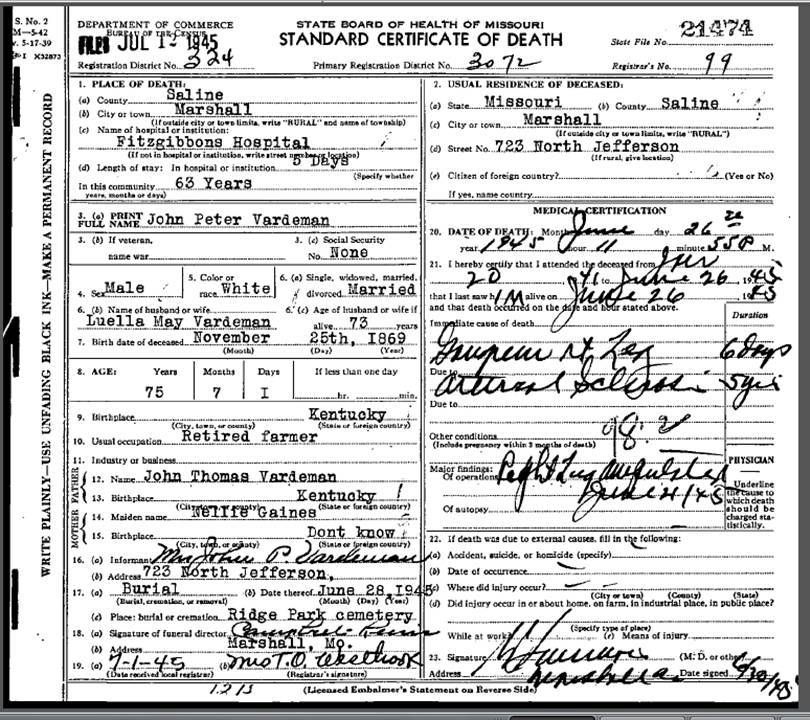 S. No. 2
M—5-42
v. 5-17-39
I X32873
DEPARTMENT OF COMMERCE
BUREAU OF THE CENSUS
FILED JUL 1- 1945
Registration District No. 324
STATE BOARD OF HEALTH OF MISSOURI
STANDARD CERTIFICATE OF DEATH
Primary Registration District No. 3072
21474
State File No.
Registrar's No. 99
WRITE PLAINLY—USE UNFADING BLACK INK—MAKE A PERMANENT RECORD
1. PLACE OF DEATH:
(a) County Saline
(b) City or town Marshall
(If outside city or town limits, write "RURAL" and name of township)
(c) Name of hospital or institution:
Fitzgibbons Hospital
(If not in hospital or institution, write street number or location)
(d) Length of stay: In hospital or institution 5 Days
(Specify whether
In this community 63 Years
years, months or days)
3. (a) PRINT FULL NAME John Peter Vardeman
3. (b) If veteran, name war
3. (c) Social Security No. None
4. Sex Male
5. Color or race White
6. (a) Single, widowed, married, divorced Married
6. (b) Name of husband or wife
Luella May Vardeman
6. (c) Age of husband or wife if alive 73 years
7. Birth date of deceased November 25th, I869
(Month) (Day) (Year)
8. AGE: Years Months Days If less than one day
75 7 I hr. min.
9. Birthplace Kentucky
(City, town, or county) (State or foreign country)
10. Usual occupation Retired farmer
11. Industry or business
FATHER
12. Name John Thomas Vardeman
13. Birthplace Kentucky
(City, town, or county) (State or foreign country)
MOTHER
14. Maiden name Nellie Gaines
15. Birthplace Dont know
(City, town, or county) (State or foreign country)
16. (a) Informant Mrs John P. Vardeman
(b) Address 723 North Jefferson,
17. (a) Burial (b) Date thereof June 28, 1945
(Burial, cremation, or removal) (Month) (Day) (Year)
(c) Place: burial or cremation Ridge Park cemetery
18. (a) Signature of funeral director
(b) Address Marshall, Mo.
19. (a) 7-1-45 (b) Mrs T.O.
(Date received local registrar) (Registrar's signature)
2. USUAL RESIDENCE OF DECEASED:
(a) State Missouri (b) County Saline
(c) City or town Marshall
(If outside city or town limits, write "RURAL")
(d) Street No. 723 North Jefferson
(If rural, give location)
(e) Citizen of foreign country? (Yes or No)
If yes, name country
MEDICAL CERTIFICATION
20. DATE OF DEATH: Month June day 26
year 1945 hour 11 minute 55 P M.
21. I hereby certify that I attended the deceased from Jan
20, 41 to June 26, 1945
that I last saw him alive on June 26 1945
and that death occurred on the date and hour stated above.
Duration
Immediate cause of death
Rt Leg 6 days
Due to
Arterial Sclerosis 5 yrs
Due to
98.2
Other conditions
(Include pregnancy within 3 months of death)
Major findings:
Of operations Right Leg amputated
June 21/45
Of autopsy
PHYSICIAN
Underline the cause to which death should be charged statistically.
22. If death was due to external causes, fill in the following:
(a) Accident, suicide, or homicide (specify)
(b) Date of occurrence
(c) Where did injury occur?
(City or town) (County) (State)
(d) Did injury occur in or about home, on farm, in industrial place, in public place?
(Specify type of place)
While at work? (e) Means of injury
23. Signature (M. D. or other)
Address Marshall Date signed 6/30/45
1213
(Licensed Embalmer's Statement on Reverse Side)